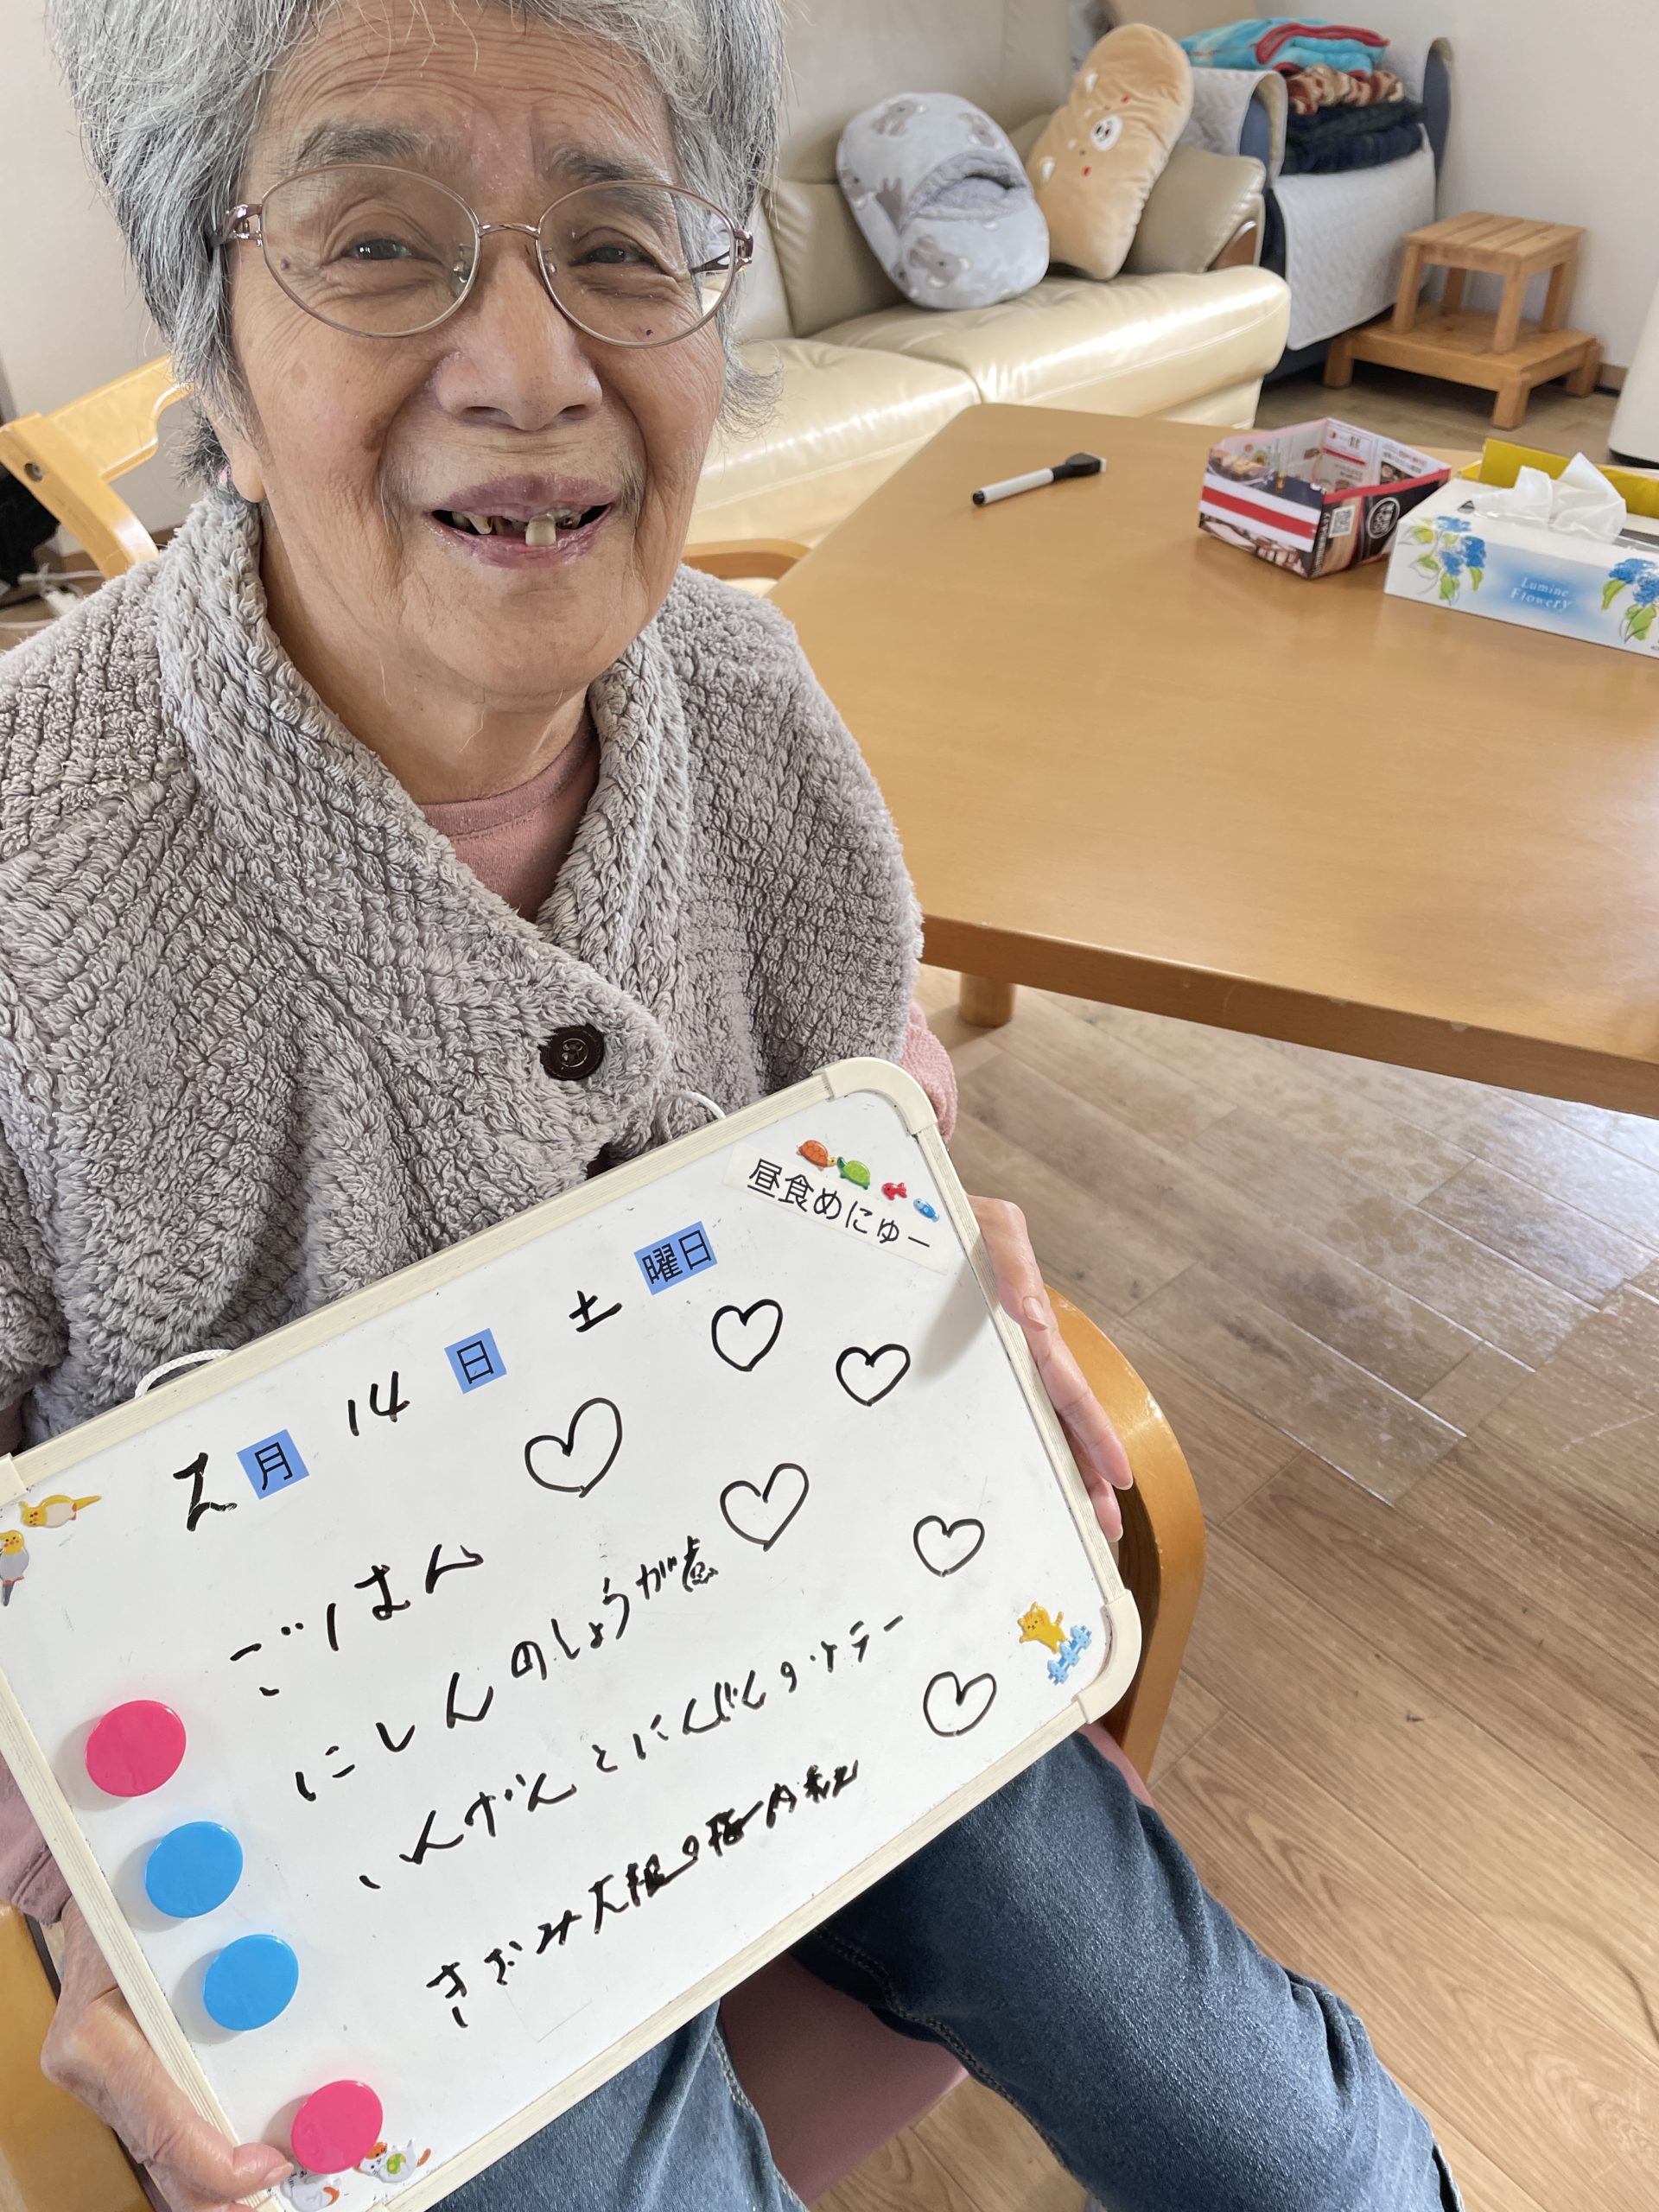 昼食めにゅー
2月14日 土曜日
ごはん
にしんのしょうが煮
いんげんとにんじんのソテー
きざみ大根の梅肉和え
Lumine
Flowery